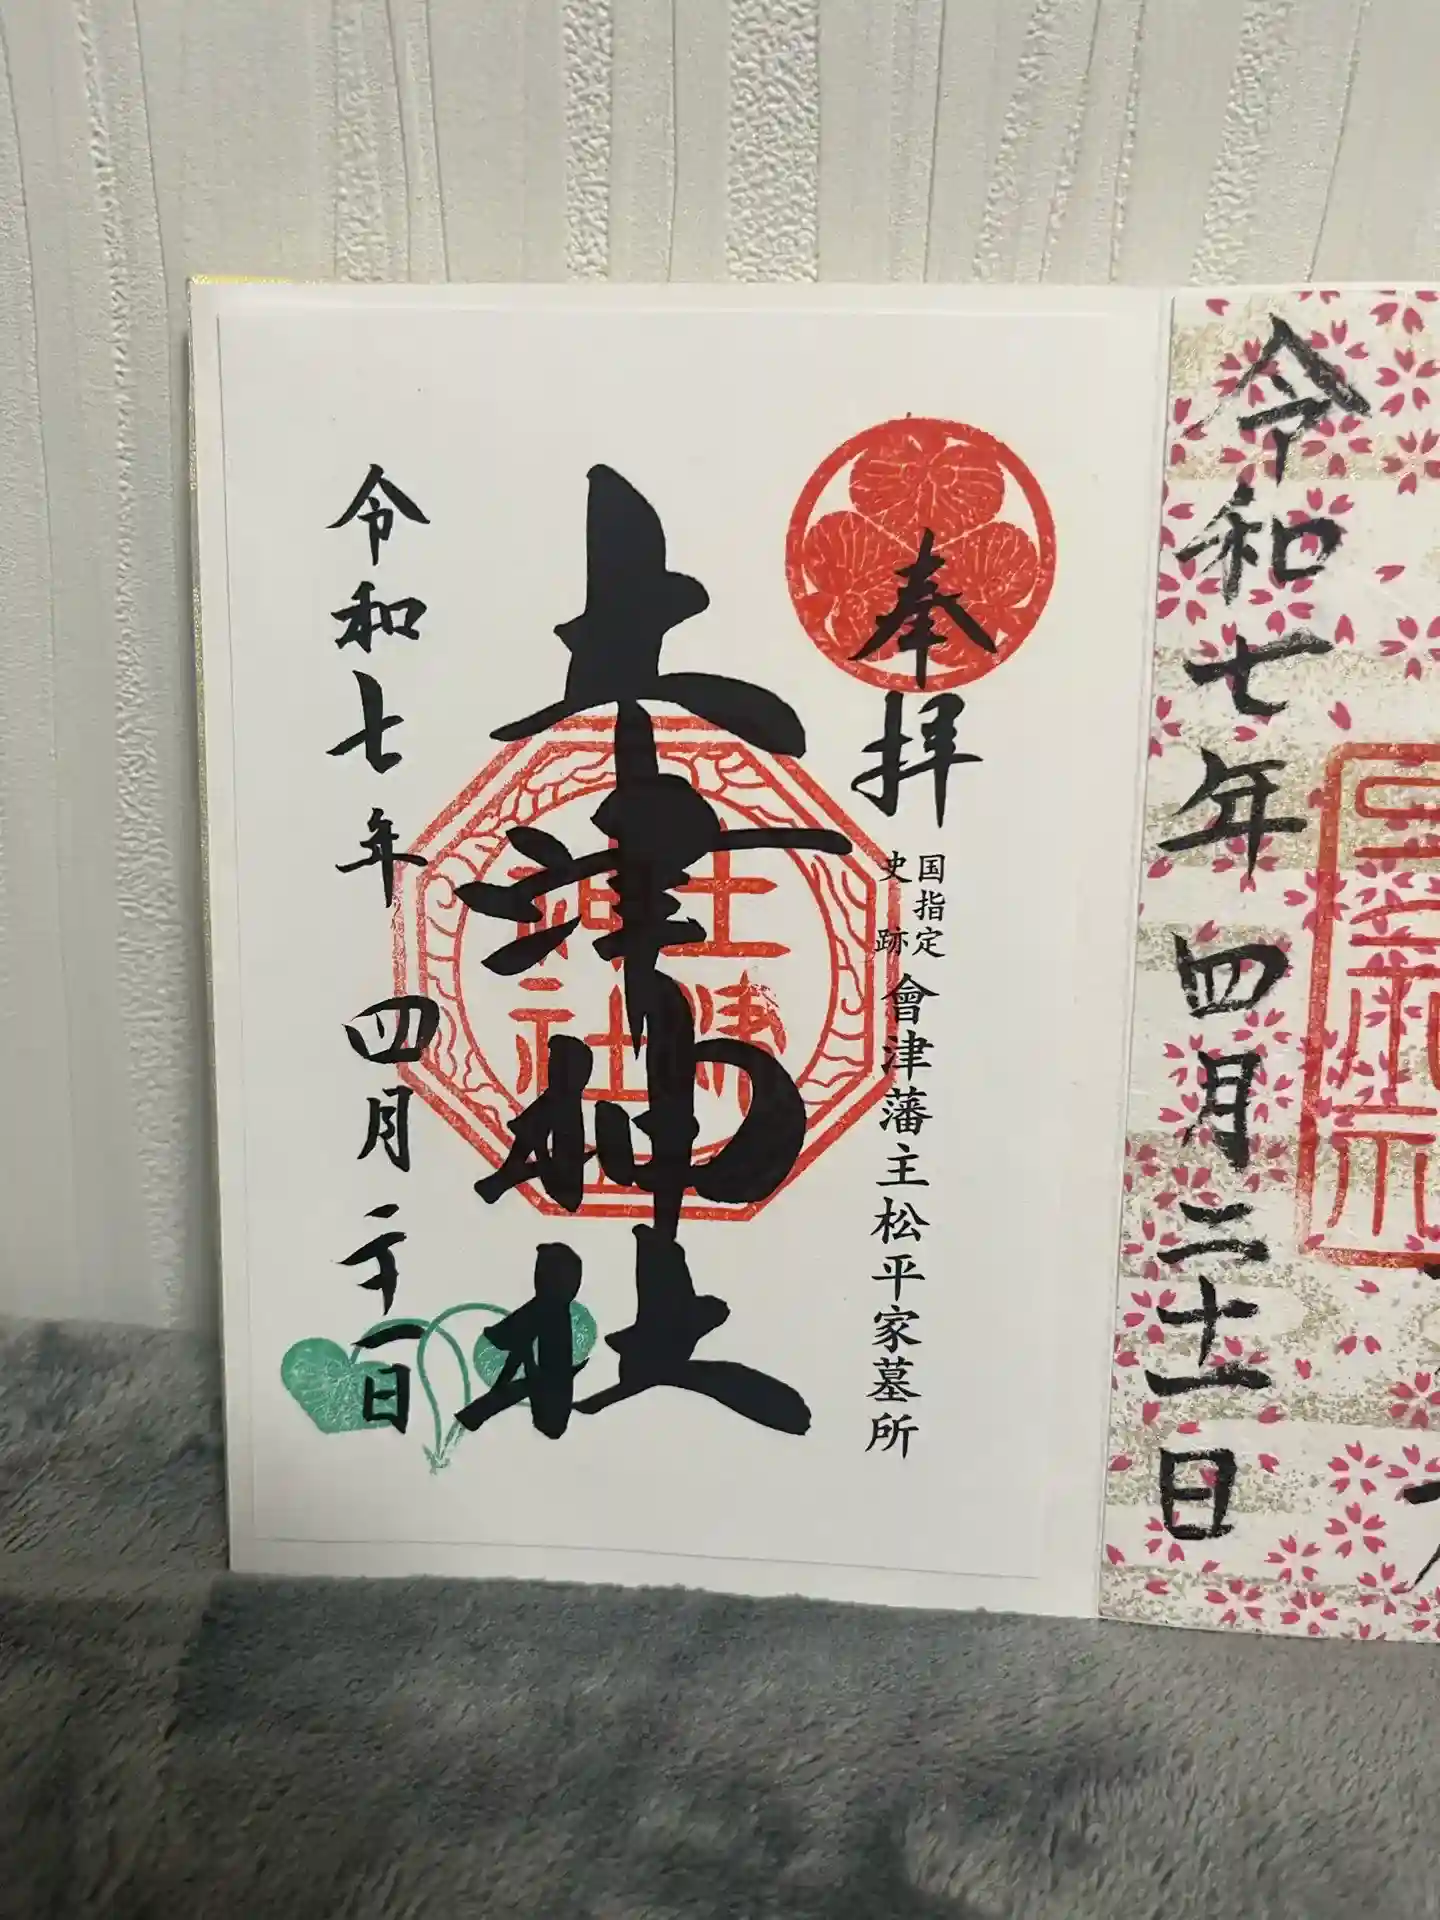 令和七年四月二十一日
奉拝
国指定
史跡
會津藩主松平家墓所
土津神社
土津
神社
令和七年四月二十一日